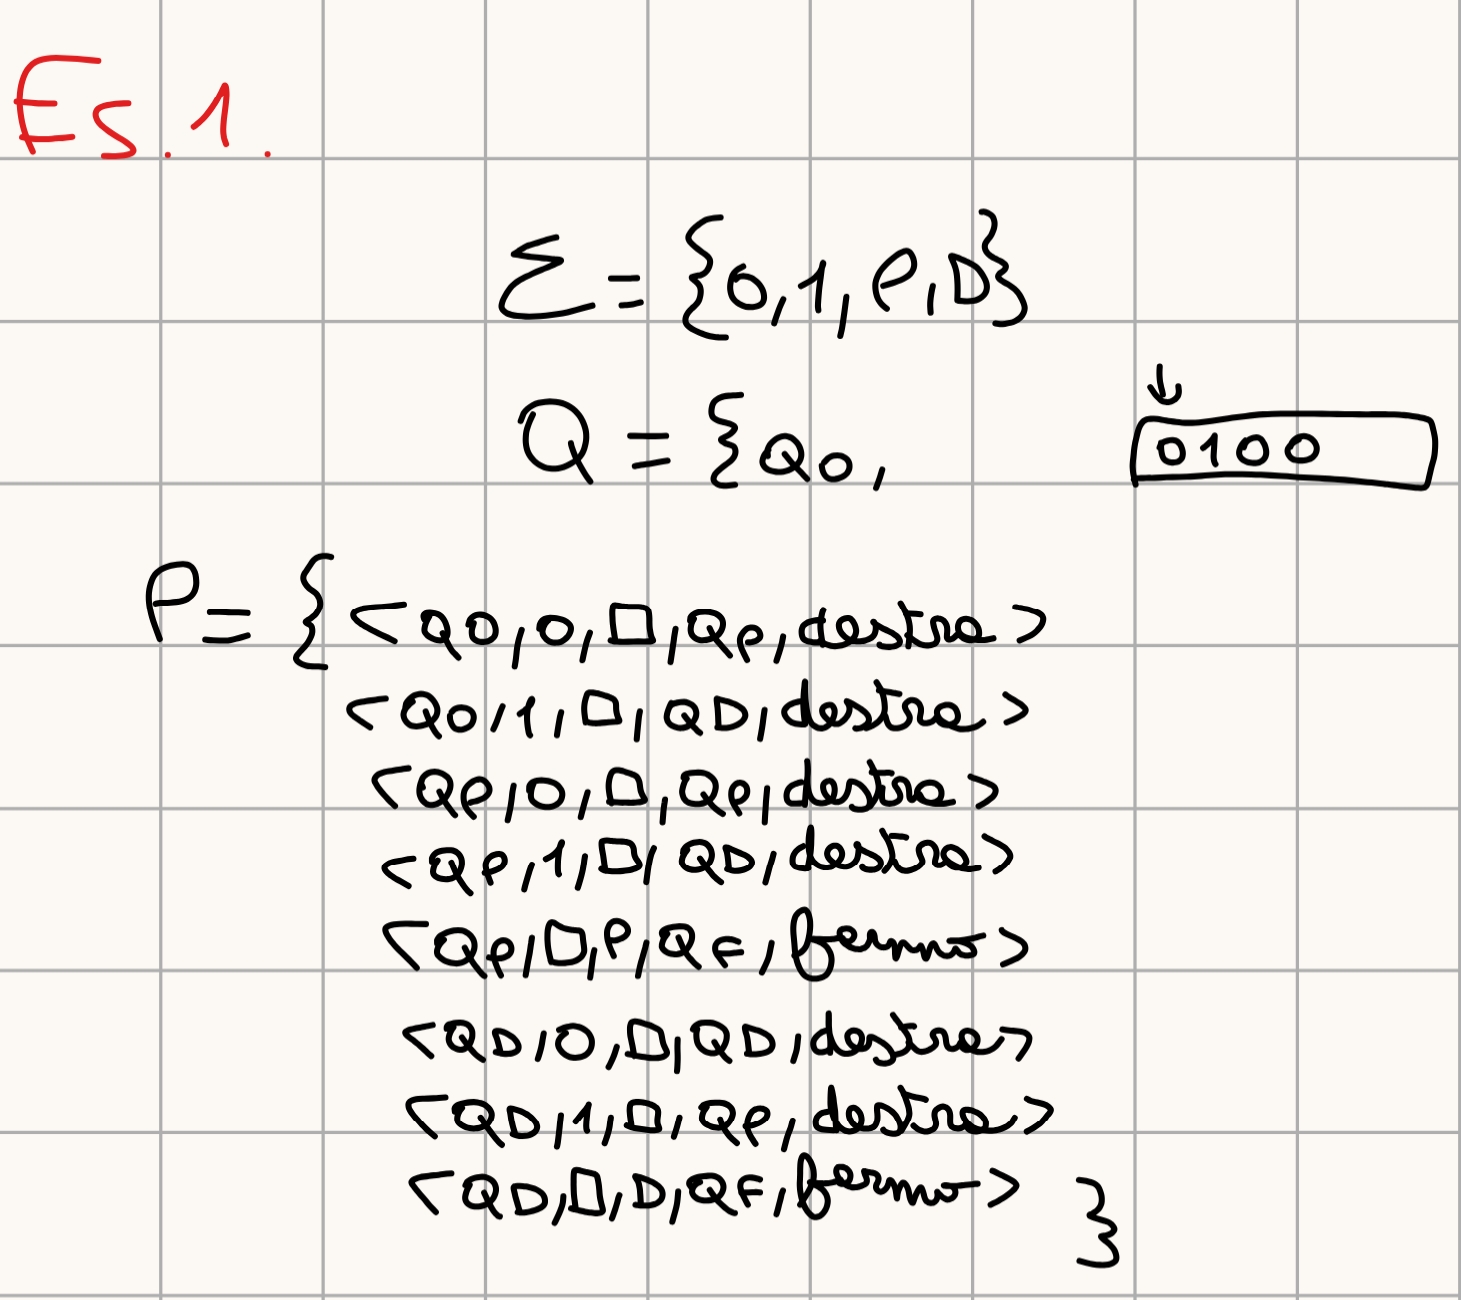 Es.1.
Σ={0,1,P,D}
Q={Q0,
↓
0100
P={<Q0,0,□,QP,destra>
<Q0,1,□,QD,destra>
<QP,0,□,QP,destra>
<QP,1,□,QD,destra>
<QP,□,P,QF,fermo>
<QD,0,□,QD,destra>
<QD,1,□,QP,destra>
<QD,□,D,QF,fermo>
}